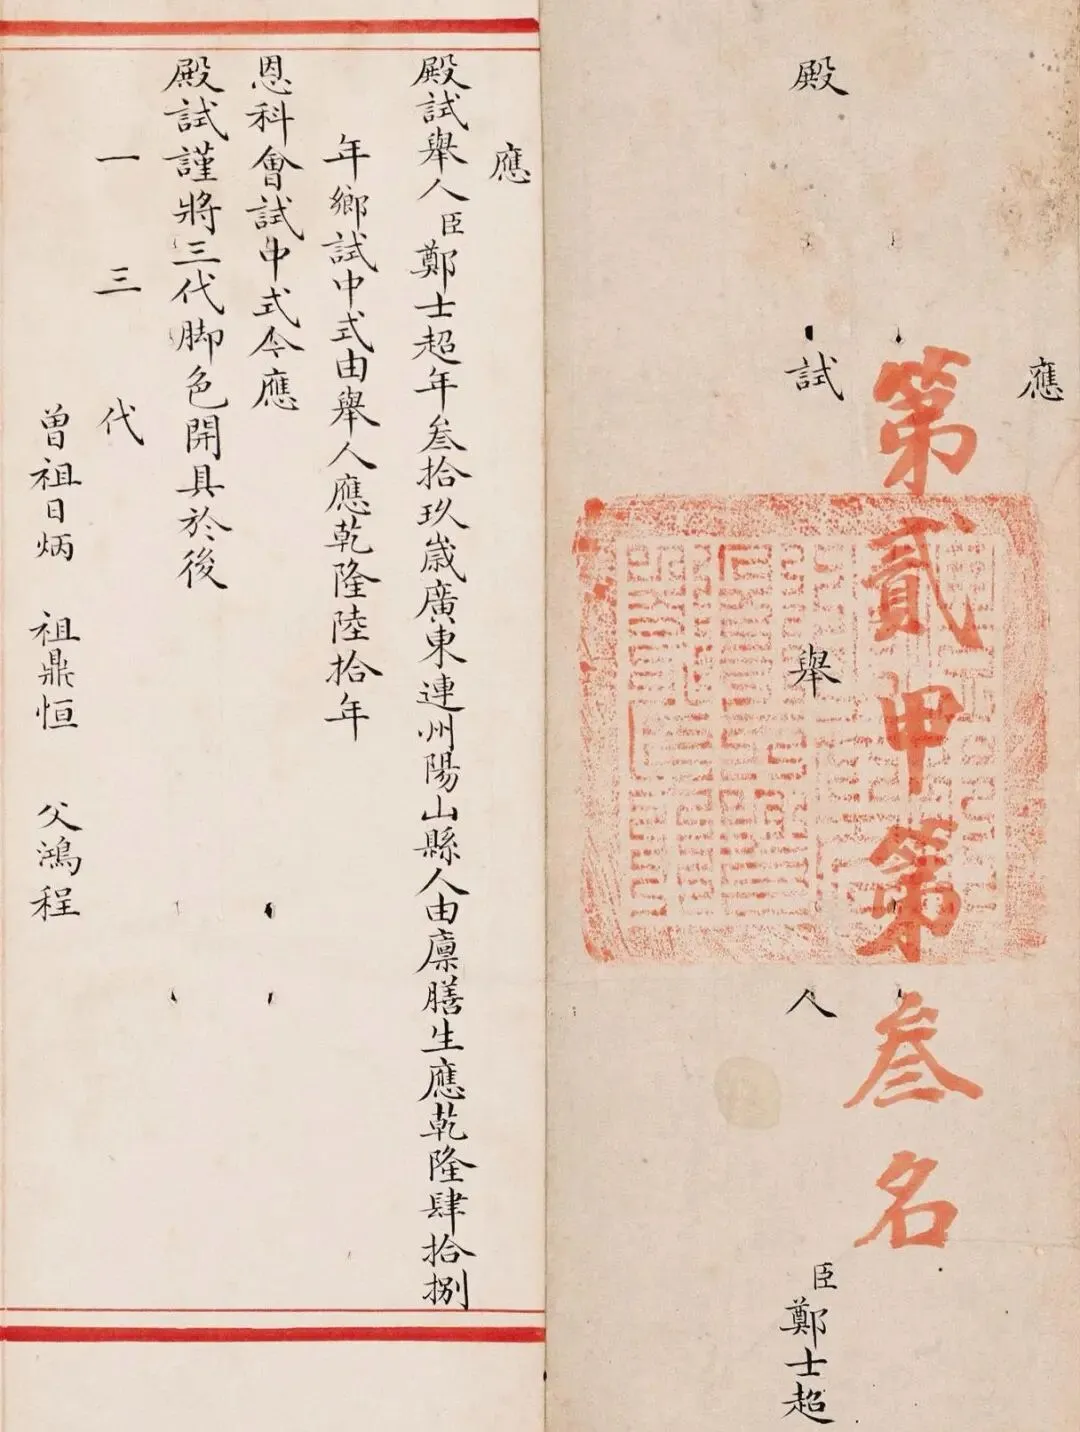 應
殿試舉人
臣鄭士超
第貳甲第叁名
應
殿試舉人臣鄭士超年叁拾玖歲廣東連州陽山縣人由廪膳生應乾隆肆拾捌
年鄉試中式由舉人應乾隆陸拾年
恩科會試中式今應
殿試謹將三代脚色開具於後
一三代
曾祖日炳 祖鼎恒 父鴻程